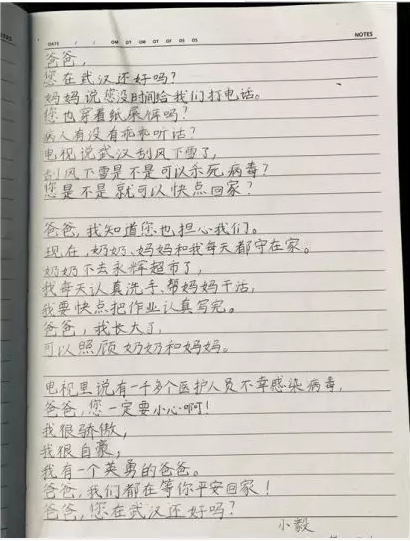 DATE / /
NOTES
爸爸，
您在武汉还好吗？
妈妈说您没时间给我们打电话。
您也穿着纸尿裤吗？
病人有没有乖乖听话？
电视说武汉刮风下雪了，
刮风下雪是不是可以杀死病毒？
您是不是就可以快点回家？
爸爸，我知道您也担心我们。
现在，奶奶、妈妈和我每天都守在家。
奶奶不去永辉超市了，
我每天认真洗手、帮妈妈干活，
我要快点把作业认真写完。
爸爸，我长大了，
可以照顾奶奶和妈妈。
电视里说有一千多个医护人员不幸感染病毒，
爸爸，您一定要小心啊！
我很骄傲，
我很自豪，
我有一个英勇的爸爸。
爸爸，我们都在等你平安回家！
爸爸，您在武汉还好吗？
小毅